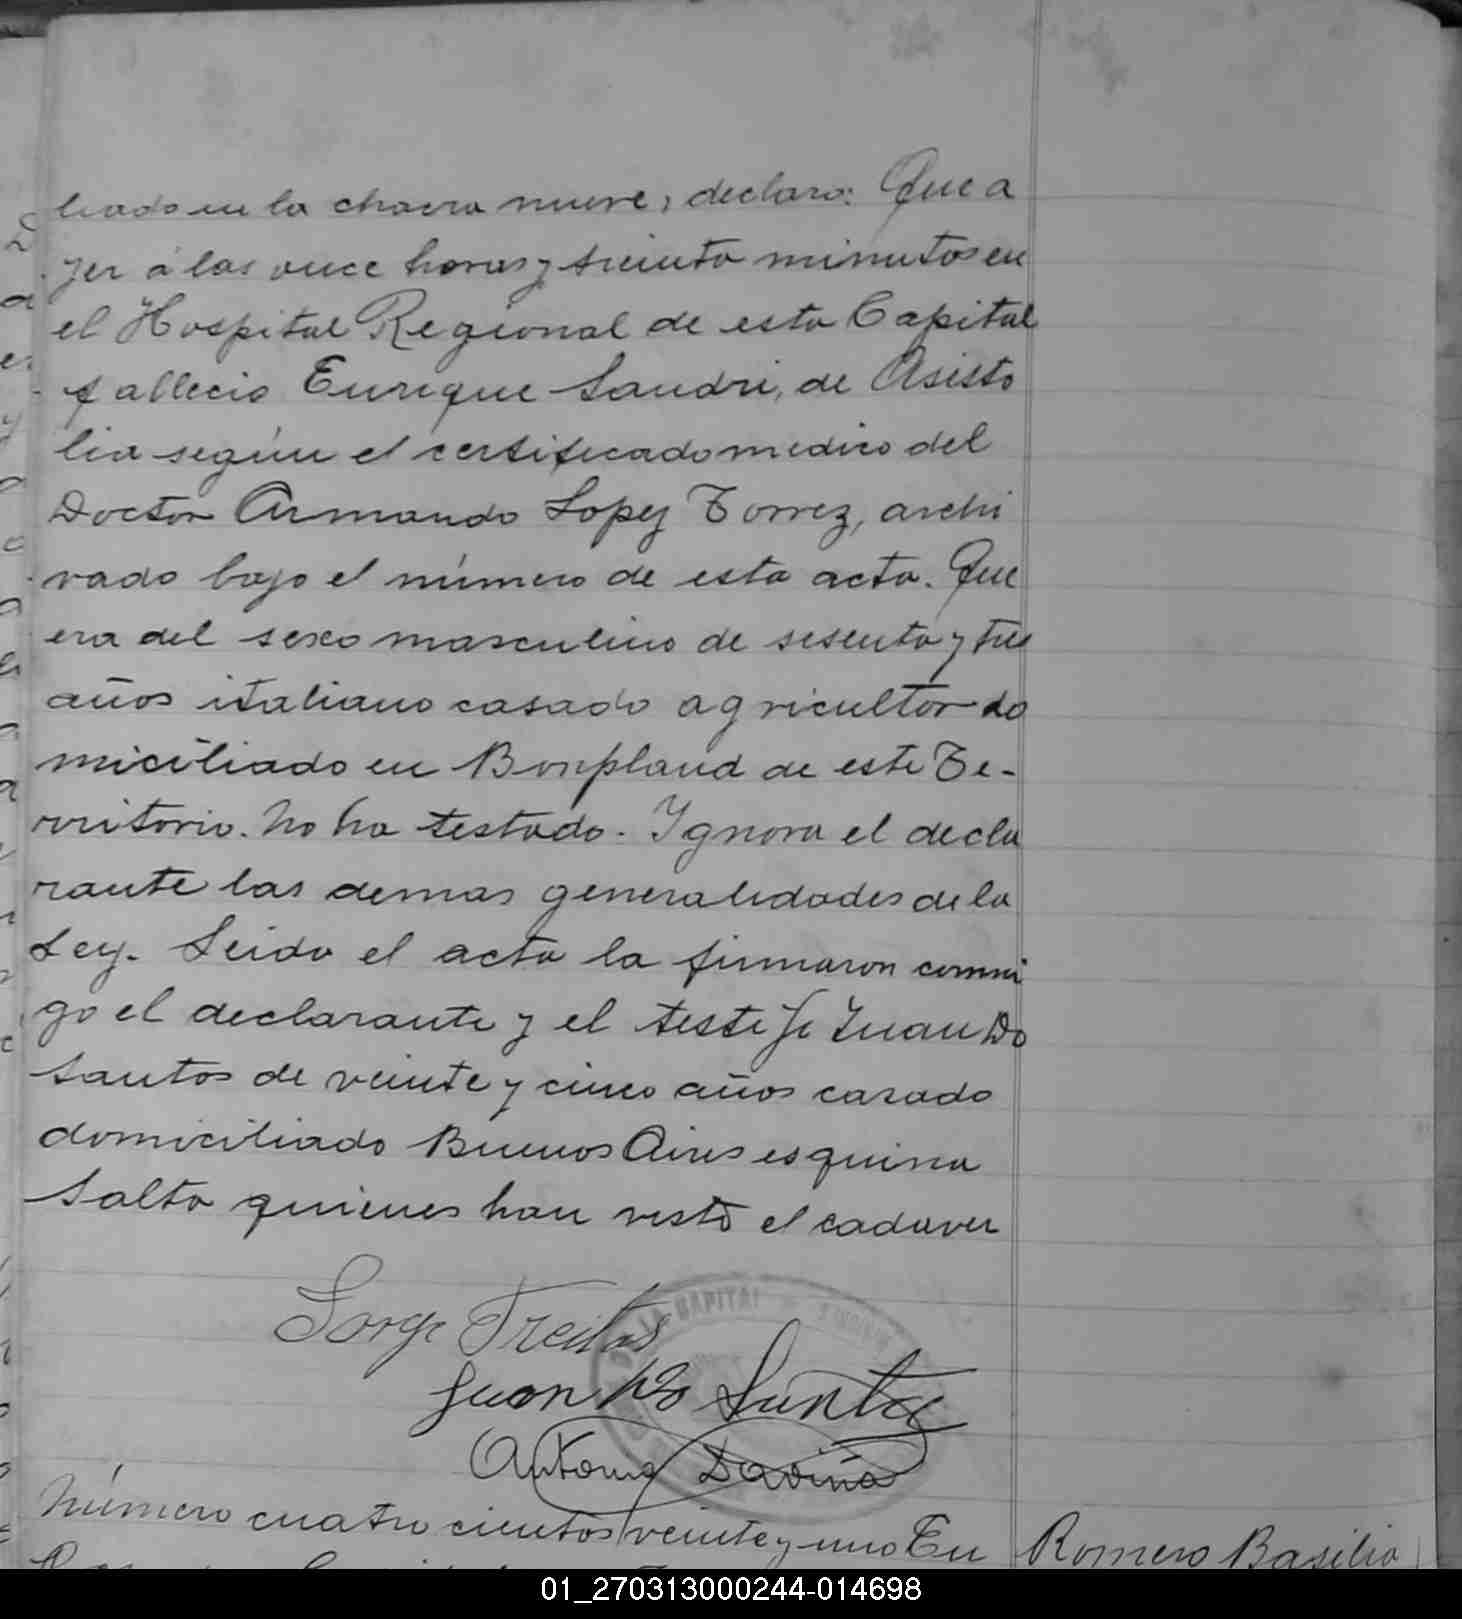 liado en la chacra nueve, declaro: Que a
yer á las once horas y treinta minutos en
el Hospital Regional de esta Capital
fallecio Enrique Sandri, de Asisto
lia según el certificado medico del
Doctor Armando Lopez Torrez, archi
vado bajo el número de esta acta. Que
era del sexo masculino de sesenta y tres
años italiano casado agricultor do
miciliado en Bonpland de este Te-
rritorio. No ha testado. Ignora el decla
rante las demas generalidades de la
Ley. Leida el acta la firmaron conmi
go el declarante y el testigo Juan Do
Santos de veinte y cinco años casado
domiciliado Buenos Aires esquina
Salta quienes han visto el cadaver
Jorge Freitas
LA CAPITAL
Juan Do Santos
Antonio Daviña
Número cuatrocientos veinte y uno En
Romero Basilio
01_270313000244-014698